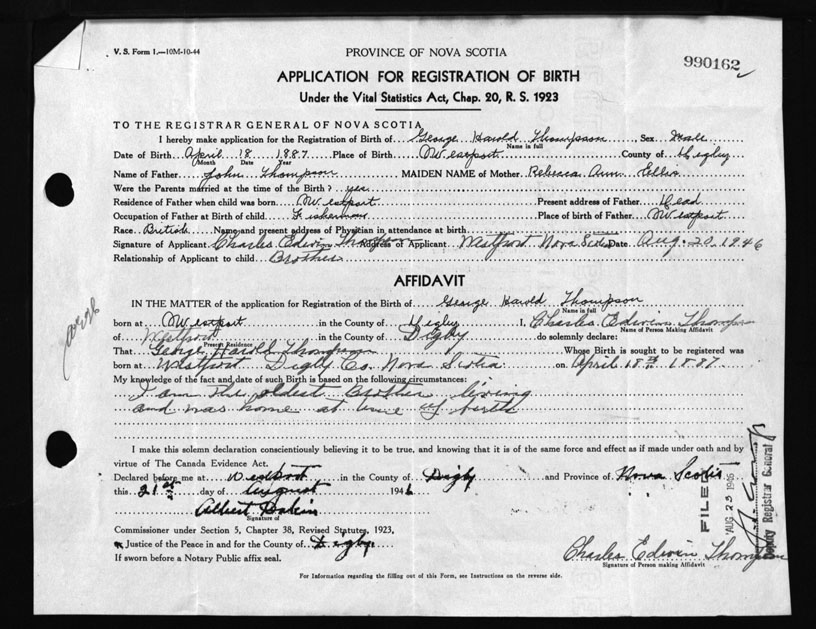 V. S. Form 1.—10M-10-44
PROVINCE OF NOVA SCOTIA
990162
APPLICATION FOR REGISTRATION OF BIRTH
Under the Vital Statistics Act, Chap. 20, R. S. 1923
TO THE REGISTRAR GENERAL OF NOVA SCOTIA
I hereby make application for the Registration of Birth of George Harold Thompson Sex Male
Name in full
Date of Birth April 18 1887 Place of Birth Westport County of Digby
Month Date Year
Name of Father John Thompson MAIDEN NAME of Mother Rebecca Ann Ellis
Were the Parents married at the time of the Birth? yes
Residence of Father when child was born Westport Present address of Father Dead
Occupation of Father at Birth of child Fisherman Place of birth of Father Westport
Race British Name and present address of Physician in attendance at birth
Signature of Applicant Charles Edwin Thompson Address of Applicant Westport Nova Scotia Date Aug. 20, 1946
Relationship of Applicant to child Brother
AFFIDAVIT
IN THE MATTER of the application for Registration of the Birth of George Harold Thompson
Name in full
born at Westport in the County of Digby I, Charles Edwin Thompson
Name of Person Making Affidavit
of Westport in the County of Digby do solemnly declare:
Present Residence
That George Harold Thompson Whose Birth is sought to be registered was
born at Westport Digby Co. Nova Scotia on April 18th 1887
My knowledge of the fact and date of such Birth is based on the following circumstances:
I am the oldest Brother living
and was home at time of birth
I make this solemn declaration conscientiously believing it to be true, and knowing that it is of the same force and effect as if made under oath and by
virtue of The Canada Evidence Act.
Declared before me at Westport in the County of Digby and Province of Nova Scotia
this 21st day of August 1946
Albert Dakin
Signature of
Commissioner under Section 5, Chapter 38, Revised Statutes, 1923,
Justice of the Peace in and for the County of Digby
If sworn before a Notary Public affix seal.
Charles Edwin Thompson
Signature of Person making Affidavit
For Information regarding the filling out of this Form, see Instructions on the reverse side.
FILED
AUG 23 1946
Deputy Registrar General